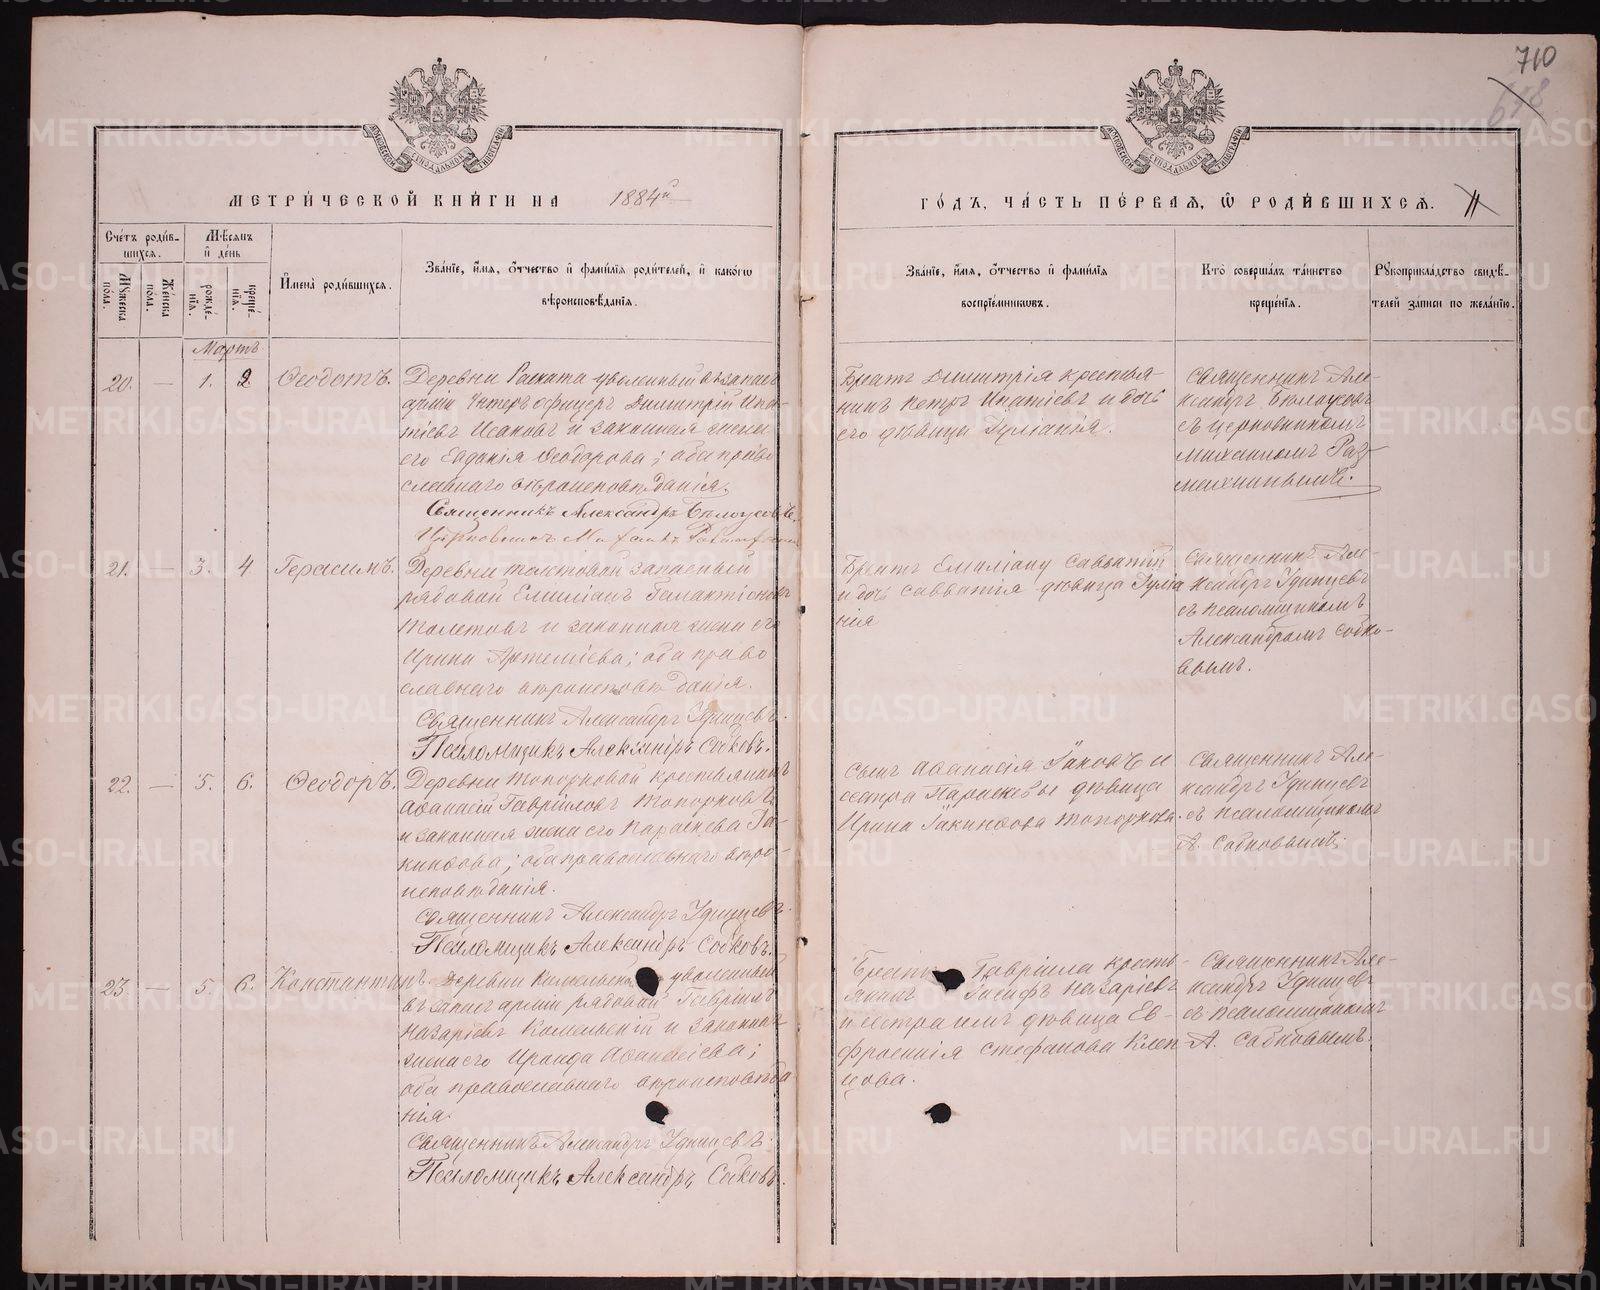 710
678
МЕТРИ́ЧЕСКОЙ КНИ́ГИ НА 1884й
ГО́ДЪ, ЧА́СТЬ ПЕ́РВАѦ, Ѡ РОДИ́ВШИХСѦ. 11
Сче́тъ роди́в-
шихсѧ.
Мѣ́сѧцъ
и҆ де́нь
Му́жеска
пола.
Же́нска
пола.
рожде́-
нїѧ.
креще́-
нїѧ.
И҆мена̀ роди́вшихсѧ.
Зва́нїе, и҆́мѧ, ѻ҆́тчество и҆ фами́лїѧ роди́телей, и҆ како́гѡ
вѣроисповѣ́данїѧ.
Зва́нїе, и҆́мѧ, ѻ҆́тчество и҆ фами́лїѧ
воспрїе́мниковъ.
Кто̀ соверша́лъ та́инство
креще́нїѧ.
Рꙋкоприкла́дство свидѣ́-
телей за́писи по жела́нїю.
Мартъ
20. — 1. 2. Ѳеодотъ.
Деревни Раската уволенный въ запасъ
арміи Унтеръ офицеръ Димитрій Ипа-
тіевъ Исаковъ и законная жена
его Евдокія Ѳеодорова; оба право
славнаго вѣроисповѣданія.
Священникъ Александръ Бѣлоусовъ.
Церковникъ Михаилъ
Братъ Димитрія крестья-
нинъ Петръ Ипатіевъ и дочь
его дѣвица Іуліанія.
Священникъ Але-
ксандръ Бѣлоусовъ
съ церковникомъ
Михаиломъ Раз-
21. — 3. 4 Герасимъ.
Деревни Толстовой запасный
рядовой Емиліанъ Галактіоновъ
Толстовъ и законная жена его
Ирина Артеміева; оба право
славнаго вѣроисповѣданія.
Священникъ Александръ Удинцевъ.
Псаломщикъ Александръ Собковъ.
Братъ Емиліану Савватій
и дочь Савватія дѣвица Іуліа
нія
Священникъ Але-
ксандръ Удинцевъ
съ псаломщикомъ
Александромъ Собко-
вымъ.
22. — 5. 6. Ѳеодоръ.
Деревни Топорковой крестьянинъ
Аѳанасій Гавріиловъ Топорковъ
и законная жена его Параскева Іа-
кинѳова; оба православнаго вѣро-
исповѣданія.
Священникъ Александръ Удинцевъ.
Псаломщикъ Александръ Собковъ.
Сынъ Аѳанасія Іаковъ и
сестра Параскевы дѣвица
Ирина Іакинѳова Топоркова.
Священникъ Але-
ксандръ Удинцевъ
съ псаломщикомъ
А. Собковымъ;
23 — 5. 6. Константинъ.
Деревни уволенный
въ запасъ арміи рядовой Гавріилъ
Назаріевъ и законная
жена его Ираида Аѳанасіева;
оба православнаго вѣроисповѣда
нія.
Священникъ Александръ Удинцевъ.
Псаломщикъ Александръ Собковъ.
Братъ Гавріила кресть-
янинъ Іосифъ Назаріевъ
и сестра имъ дѣвица Ев-
фросинія Стефанова Клеп
цова.
Священникъ Але-
ксандръ Удинцевъ
съ псаломщикомъ
А. Собковымъ.
METRIKI.GASO-URAL.RU